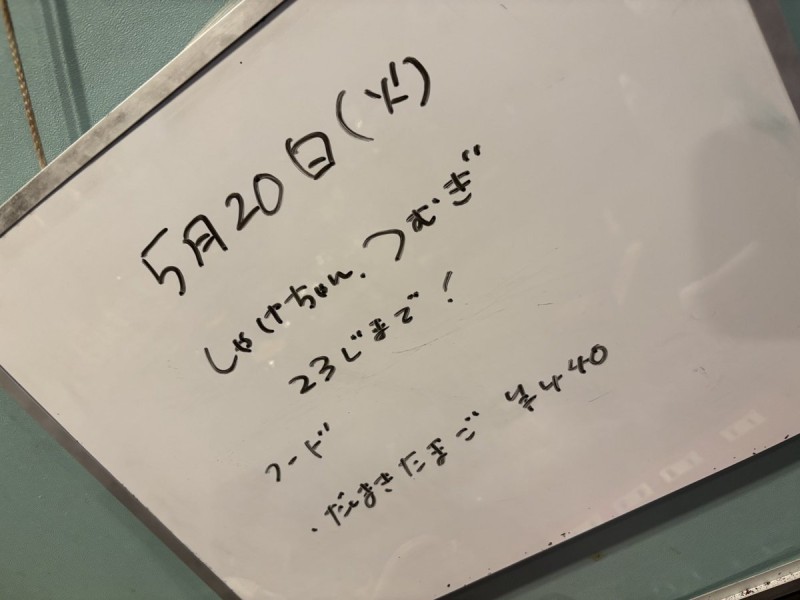 5月20日(火)
しゃけちゃん、つむぎ
23じまで!
フード
・だしまきたまご ¥440